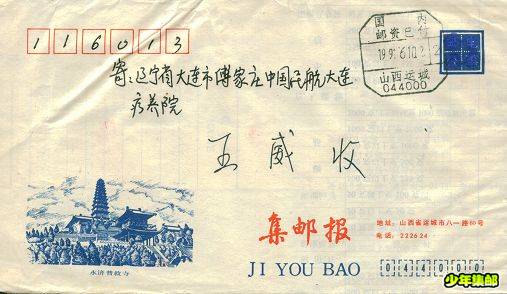 116013
国 内
邮资已付
山西运城
044000
寄:辽宁省大连市傅家庄中国民航大连
疗养院
王威 收
永济普救寺
集邮报
JI YOU BAO
地址:山西省运城市八一路80号
电话:222624
044000
少年集邮